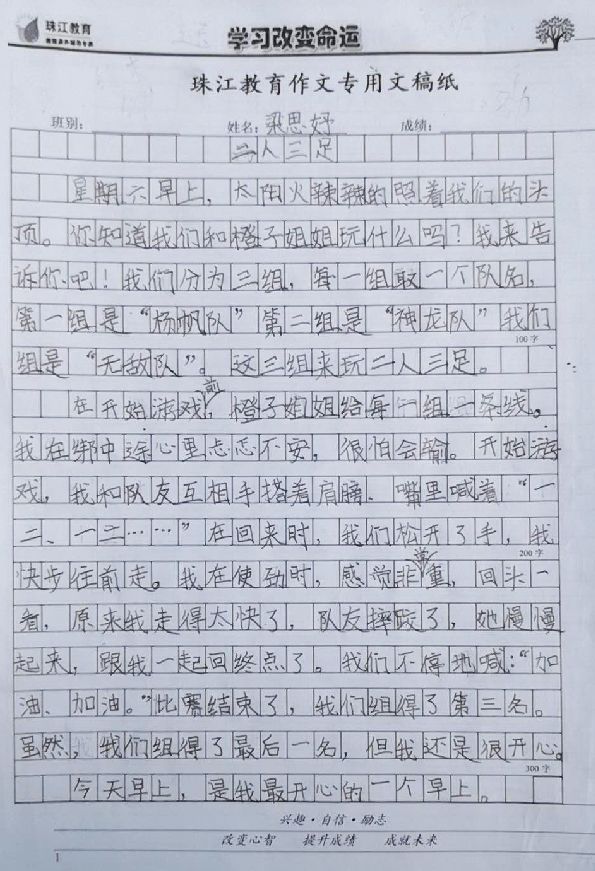 珠江教育
学习改变命运
珠江教育作文专用文稿纸
班别： 姓名：梁思妤 成绩：
二人三足
星期六早上，太阳火辣辣的照着我们的头
顶。你知道我们和橙子姐姐玩什么吗？我来告
诉你吧！我们分为三组，每一组取一个队名，
第一组是“杨帆队”第二组是“神龙队”我们
100字
组是“无敌队”。这三组来玩二人三足。
在开始游戏前，橙子姐姐给每一组一条线。
我在绑中途心里忐忑不安，很怕会输。开始游
戏，我和队友互相手搭着肩膀、嘴里喊着“一
二、一二……”在回来时，我们松开了手，我
200字
快步往前走。我在使劲时，感觉非常重，回头一
看，原来我走得太快了，队友摔跤了，她慢慢
起来，跟我一起回终点了。我们不停地喊：“加
油、加油。”比赛结束了，我们组得了第三名。
虽然，我们组得了最后一名，但我还是很开心。
300字
今天早上，是我最开心的一个早上。
兴趣·自信·励志
改变心智 提升成绩 成就未来
1